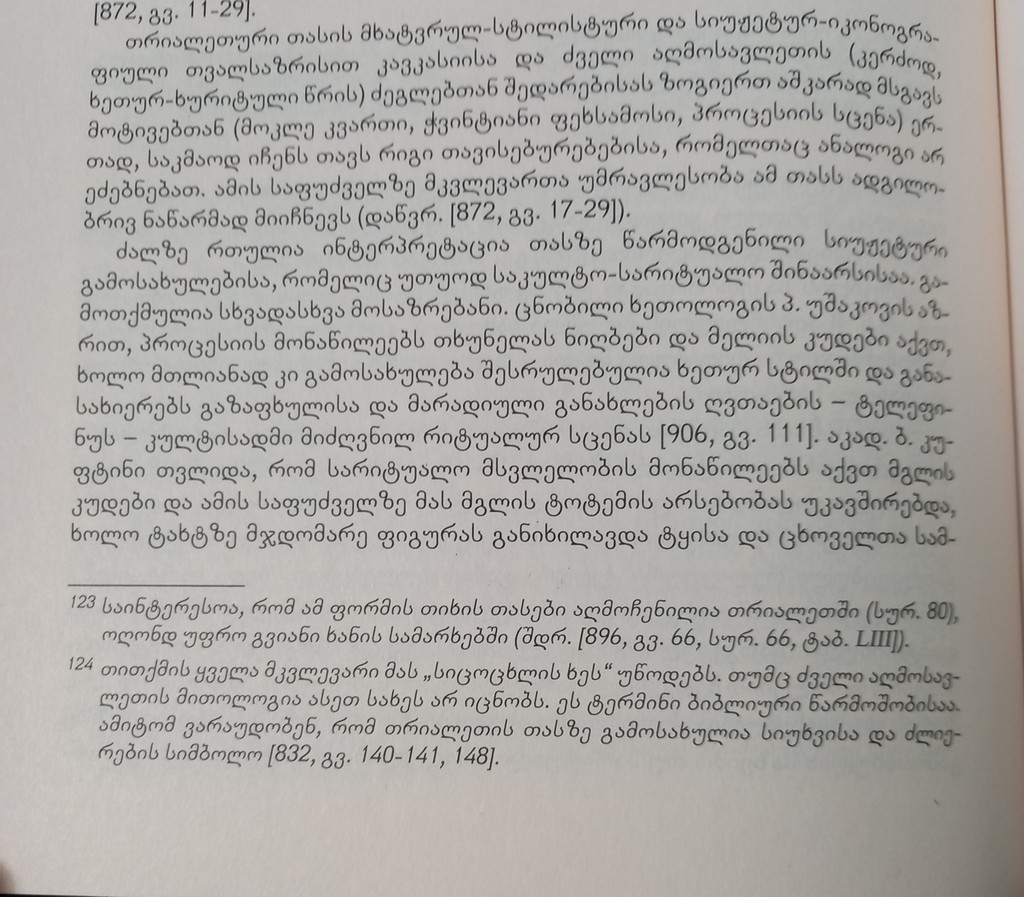 [872, გვ. 11-29].
თრიალეთური თასის მხატვრულ-სტილისტური და სიუჟეტურ-იკონოგრა-
ფიული თვალსაზრისით კავკასიისა და ძველი აღმოსავლეთის (კერძოდ,
ხეთურ-ხურიტული წრის) ძეგლებთან შედარებისას ზოგიერთ აშკარად მსგავს
მოტივებთან (მოკლე კვართი, ჭვინტიანი ფეხსამოსი, პროცესიის სცენა) ერ-
თად, საკმაოდ იჩენს თავს რიგი თავისებურებებისა, რომელთაც ანალოგი არ
ეძებნებათ. ამის საფუძველზე მკვლევართა უმრავლესობა ამ თასს ადგილო-
ბრივ ნაწარმად მიიჩნევს (დაწვრ. [872, გვ. 17-29]).
ძალზე რთულია ინტერპრეტაცია თასზე წარმოდგენილი სიუჟეტური
გამოსახულებისა, რომელიც უთუოდ საკულტო-სარიტუალო შინაარსისაა. გა-
მოთქმულია სხვადასხვა მოსაზრებანი. ცნობილი ხეთოლოგის პ. უშაკოვის აზ-
რით, პროცესიის მონაწილეებს თხუნელას ნიღბები და მელიის კუდები აქვთ,
ხოლო მთლიანად კი გამოსახულება შესრულებულია ხეთურ სტილში და განა-
სახიერებს გაზაფხულისა და მარადიული განახლების ღვთაების – ტელეფი-
ნუს – კულტისადმი მიძღვნილ რიტუალურ სცენას [906, გვ. 111]. აკად. ბ. კუ-
ფტინი თვლიდა, რომ სარიტუალო მსვლელობის მონაწილეებს აქვთ მგლის
კუდები და ამის საფუძველზე მას მგლის ტოტემის არსებობას უკავშირებდა,
ხოლო ტახტზე მჯდომარე ფიგურას განიხილავდა ტყისა და ცხოველთა სამ-
123 საინტერესოა, რომ ამ ფორმის თიხის თასები აღმოჩენილია თრიალეთში (სურ. 80),
ოღონდ უფრო გვიანი ხანის სამარხებში (შდრ. [896, გვ. 66, სურ. 66, ტაბ. LIII]).
124 თითქმის ყველა მკვლევარი მას „სიცოცხლის ხეს“ უწოდებს. თუმც ძველი აღმოსავ-
ლეთის მითოლოგია ასეთ სახეს არ იცნობს. ეს ტერმინი ბიბლიური წარმოშობისაა.
ამიტომ ვარაუდობენ, რომ თრიალეთის თასზე გამოსახულია სიუხვისა და ძლიე-
რების სიმბოლო [832, გვ. 140-141, 148].